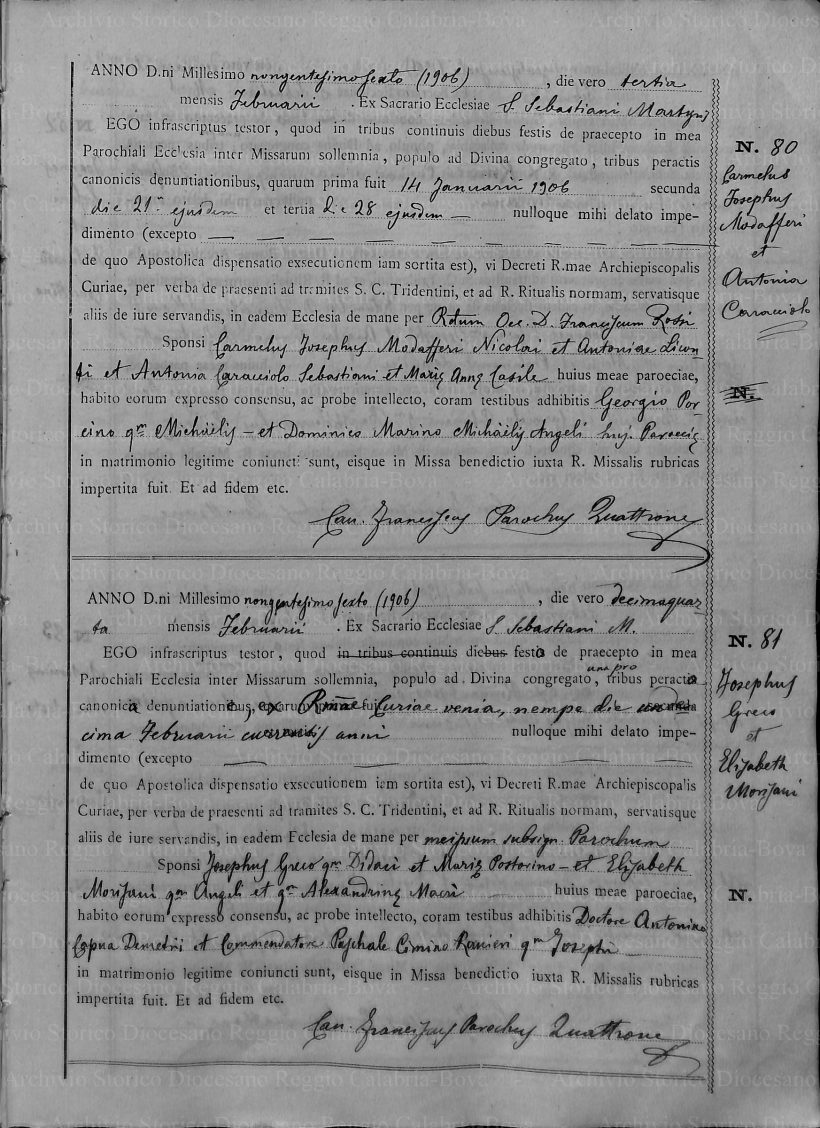 Archivio Storico Diocesano Reggio Calabria-Bova
ANNO D.ni Millesimo nongentesimo sexto (1906), die vero tertia
mensis Februarii. Ex Sacrario Ecclesiae S. Sebastiani Martyris
EGO infrascriptus testor, quod in tribus continuis diebus festis de praecepto in mea
Parochiali Ecclesia inter Missarum sollemnia, populo ad Divina congregato, tribus peractis
canonicis denuntiationibus, quarum prima fuit 14 Januarii 1906 secunda
die 21ª ejusdem et tertia die 28 ejusdem — nulloque mihi delato impe-
dimento (excepto — — — — — — — — —
de quo Apostolica dispensatio exsecutionem iam sortita est), vi Decreti R.mae Archiepiscopalis
Curiae, per verba de praesenti ad tramites S. C. Tridentini, et ad R. Ritualis normam, servatisque
aliis de iure servandis, in eadem Ecclesia de mane per Rdum Oec. D. Franciscum Rossi
Sponsi Carmelus Josephus Modafferi Nicolai et Antoniae Licon
ti et Antonia Caracciolo Sebastiani et Mariæ Annæ Casile huius meae paroeciae,
habito eorum expresso consensu, ac probe intellecto, coram testibus adhibitis Georgio Por
cino qm Michäelis – et Dominico Marino Michäelis Angeli huj. Paroeciæ
in matrimonio legitime coniuncti sunt, eisque in Missa benedictio iuxta R. Missalis rubricas
impertita fuit. Et ad fidem etc.
Can. Franciscus Parochus Quattrone
N. 80
Carmelus
Josephus
Modafferi
et
Antonia
Caracciolo
N.
ANNO D.ni Millesimo nongentesimo sexto (1906), die vero decimaquar
ta mensis Februarii. Ex Sacrario Ecclesiae S. Sebastiani M.
EGO infrascriptus testor, quod in tribus continuis diebus festo de praecepto in mea
Parochiali Ecclesia inter Missarum sollemnia, populo ad Divina congregato, una pro tribus peracta
canonica denuntiatione, ex Rmae Curiae venia, nempe die unde
cima Februarii currentis anni nulloque mihi delato impe-
dimento (excepto — — — — —
de quo Apostolica dispensatio exsecutionem iam sortita est), vi Decreti R.mae Archiepiscopalis
Curiae, per verba de praesenti ad tramites S. C. Tridentini, et ad R. Ritualis normam, servatisque
aliis de iure servandis, in eadem Ecclesia de mane per meipsum subsign. Parochum
Sponsi Josephus Greco qm Didaci et Mariæ Postorino – et Elisabeth
Morisani qm Angeli et qm Alexandrinæ Macrì huius meae paroeciae,
habito eorum expresso consensu, ac probe intellecto, coram testibus adhibitis Doctore Antonino
Capua Demetrii et Commendatore Paschale Cimino Ranieri qm Josephi
in matrimonio legitime coniuncti sunt, eisque in Missa benedictio iuxta R. Missalis rubricas
impertita fuit. Et ad fidem etc.
Can. Franciscus Parochus Quattrone
N. 81
Josephus
Greco
et
Elisabeth
Morisani
N.